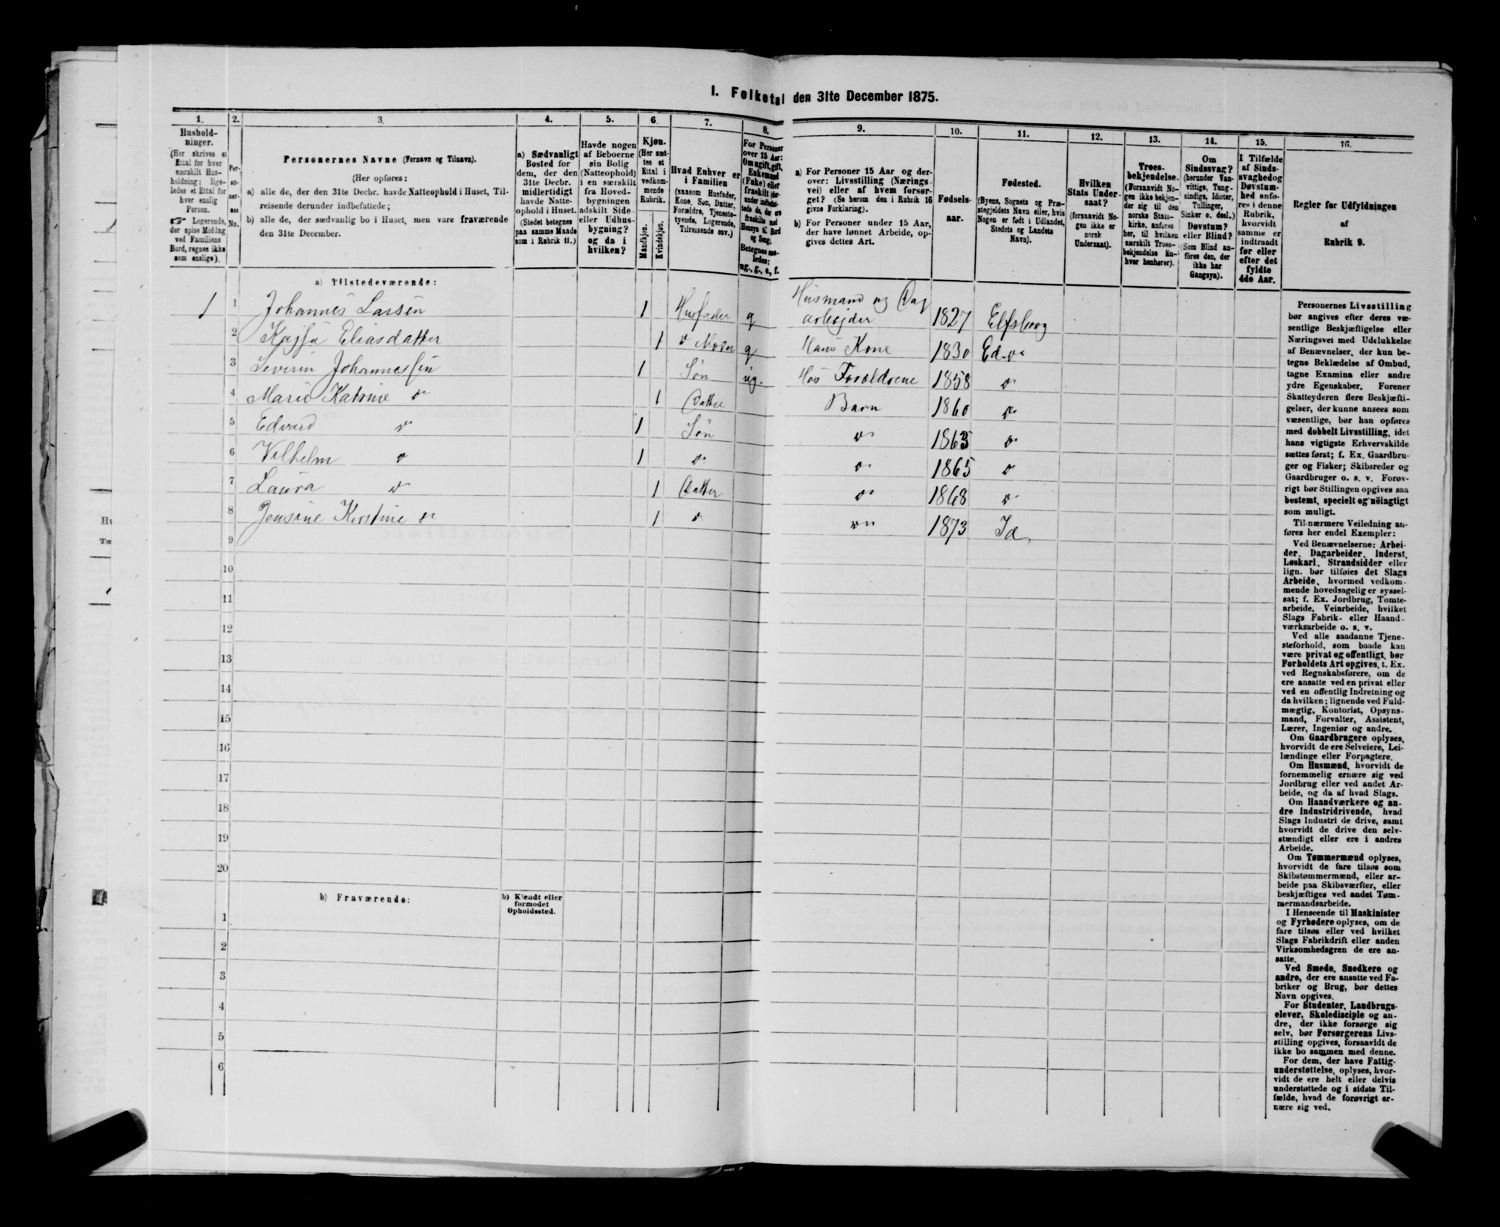 I. Folketal den 31te December 1875.
1. 2. 3. 4. 5. 6. 7. 8. 9. 10. 11. 12. 13. 14. 15. 16.
Hushold-
ninger.
(Her skrives et
Ettal for hver
særskilt Hus-
holdning; lige-
ledes et Ettal for
hver enslig
Person.
☞ Logerende,
der spise Middag
ved Familiens
Bord, regnes ikke
som enslige).
Per-
so-
ner-
nes
No.
Personernes Navne (Fornavn og Tilnavn).
(Her opføres:
a) alle de, der den 31te Decbr. havde Natteophold i Huset, Til-
reisende derunder indbefattede;
b) alle de, der sædvanlig bo i Huset, men vare fraværende
den 31te December.
a) Sædvanligt
Bosted for
dem, der den
31te Decbr.
midlertidigt
havde Natte-
ophold i Huset.
(Stedet betegnes
paa samme Maade
som i Rubrik 11.)
Havde nogen
af Beboerne
sin Bolig
(Natteophold)
i en særskilt
fra Hoved-
bygningen
adskilt Side-
eller Udhus-
bygning?
og da i
hvilken?
Kjøn.
(Her sæt-
tes et
Ettal i
vedkom-
mende
Rubrik.
Mandkjøn.
Kvindekjøn.
Hvad Enhver er
i Familien
(saasom Husfader,
Kone, Søn, Datter,
Forældre, Tjeneste-
tyende, Logerende,
Tilreisende osv.)
For Personer
over 15 Aar:
Om ugift, gift,
Enkemand
(Enke) eller
fraskilt
ug., g., e., f.
a) For Personer 15 Aar og der-
over: Livsstilling (Nærings-
vei) eller af hvem forsør-
get? (Se herom den i Rubrik 16
givne Forklaring).
b) For Personer under 15 Aar,
der have lønnet Arbeide, op-
gives dettes Art.
Fødsels-
aar.
Fødested.
(Byens, Sognets og Præ-
stegjeldets Navn eller, hvis
Nogen er født i Udlandet,
Stedets og Landets
Navn).
Hvilken
Stats Under-
saat?
(forsaavidt No-
gen ikke er
norsk
Undersaat).
Troes-
bekjendelse.
(Forsaavidt No-
gen ikke bekjen-
der sig til den
norske Stats-
kirke, anføres
her, til hvilken
særskilt Troes-
bekjendelse En-
hver henhører).
Om
Sindssvag?
(herunder Van-
vittige, Tung-
sindige, Idioter,
Tullinger,
Sinker o. desl.)
Døvstum?
eller Blind?
(Som Blind an-
føres den, der
ikke har
Gangsyn).
I Tilfælde
af Sinds-
svaghed og
Døvstum-
hed anfø-
res i denne
Rubrik,
hvorvidt
samme er
indtraadt
før eller
efter det
fyldte
4de Aar.
Regler for Udfyldningen
af
Rubrik 9.
a) Tilstedeværende:
1 1 Johannes Larsen 1 Husfader g Husmand og Dag
arbejder 1827 Elfsborg
2 Kajsa Eliasdatter 1 g Hans Kone 1830 Ed
3 Severin Johannessen 1 Søn ug. Hos Forældrene 1858 do
4 Marie Katrine do 1 Datter Barn 1860 do
5 Edvard do 1 Søn do 1863 do
6 Vilhelm do 1 do do 1865 do
7 Laura do 1 Datter do 1868 do
8 Jensine Kirstine do 1 do do 1873 Id
9
10
11
12
13
14
15
16
17
18
19
20
b) Fraværende:
b) Kjendt eller
formodet
Opholdssted.
1
2
3
4
5
6
Personernes Livsstilling
bør angives efter deres væ-
sentlige Beskjæftigelse eller
Næringsvei med Udelukkelse
af Benævnelser, der kun be-
tegne Beklædelse af Ombud,
tagne Examina eller andre
ydre Egenskaber. Forener
Skatteyderen flere Beskjæfti-
gelser, der kunne ansees som
væsentlige, bør han opføres
med dobbelt Livsstilling, idet
hans vigtigste Erhvervskilde
sættes først; f. Ex. Gaardbru-
ger og Fisker; Skibsreder og
Gaardbruger o. s. v. Forøv-
rigt bør Stillingen opgives saa
bestemt, specielt og nøiagtigt
som muligt.
Til nærmere Veiledning an-
føres her endel Exempler:
Ved Benævnelserne: Arbei-
der, Dagarbeider, Inderst,
Løskarl, Strandsidder eller
lign. bør tilføies det Slags
Arbeide, hvormed vedkom-
mende hovedsagelig er syssel-
sat; f. Ex. Jordbrug, Tomte-
arbeide, Veiarbeide, hvilket
Slags Fabrik- eller Haand-
værksarbeide o. s. v.
Ved alle saadanne Tjene-
steforhold, som baade kan
være privat og offentligt, bør
Forholdets Art opgives, t. Ex.
ved Regnskabsførere, om de
ere ansatte ved en privat eller
ved en offentlig Indretning og
da hvilken; lignende ved Fuld-
mægtig, Kontorist, Opsyns-
mand, Forvalter, Assistent,
Lærer, Ingeniør og andre.
Om Gaardbrugere oplyses,
hvorvidt de ere Selveiere, Lei-
lændinge eller Forpagtere.
Om Husmænd, hvorvidt de
fornemmelig ernære sig ved
Jordbrug eller ved andet Ar-
beide, og da af hvad Slags.
Om Haandværkere og an-
dre Industridrivende, hvad
Slags Industri de drive, samt
hvorvidt de drive den selv-
stændigt eller ere i andres
Arbeide.
Om Tømmermænd oplyses,
hvorvidt de fare tilsøs som
Skibstømmermænd, eller ar-
beide paa Skibsværfter, eller
beskjæftiges ved andet Tøm-
mermandsarbeide.
I Henseende til Maskinister
og Fyrbødere oplyses, om de
fare tilsøs eller ved hvilket
Slags Fabrikdrift eller anden
Virksomhedsgren de ere an-
satte.
Ved Smede, Snedkere og
andre, der ere ansatte ved Fa-
briker og Brug, bør dettes
Navn opgives.
For Studenter, Landbrugs-
elever, Skoledisciple og an-
dre, der ikke forsørge sig
selv, bør Forsørgerens Livs-
stilling opgives, forsaavidt de
ikke bo sammen med denne.
For dem, der have Fattig-
understøttelse, oplyses, hvor-
vidt de ere helt eller delvis
understøttede og i sidste Til-
fælde, hvad de forøvrigt er-
nære sig ved.